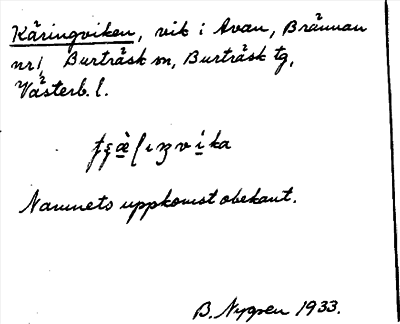 Käringviken, vik i Avan, Brännan
nr 1, Burträsk sn, Burträsk tg,
Västerb. l.
Namnets uppkomst obekant.
B. Nygren 1933.